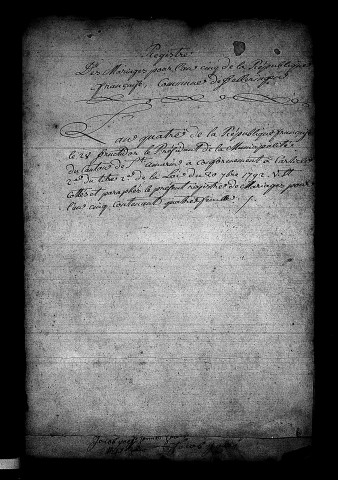 Registre
Des Mariages pour l'an cinq de la République
française, Commune de felleringuen
L'an quatre de la République française
le 28 fructidor le Président de la Municipalité
du Canton de St amarin a conformement à l'article
2me du titre 2me de la Loi du 20 7bre 1792 V. St
Cotté et paraphé le présent registre de Mariages pour
l'an cinq contenant quatre feuille